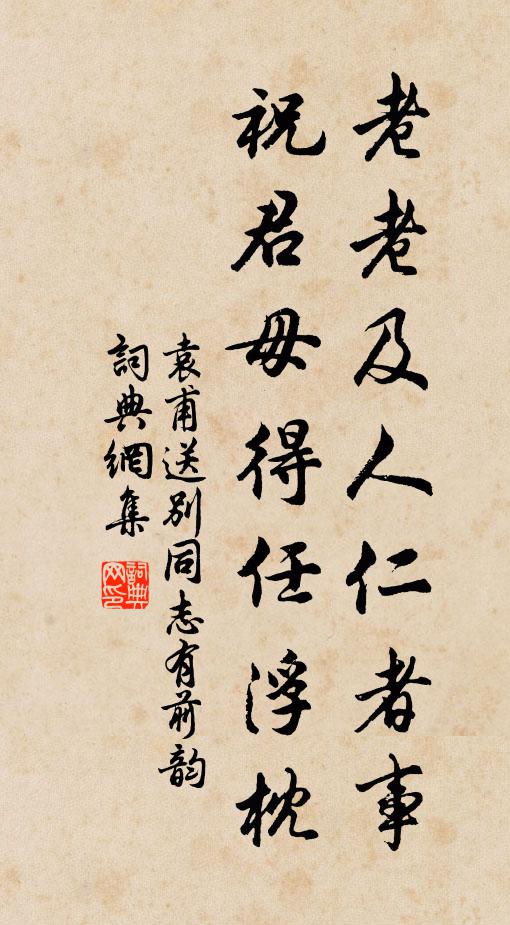 老老及人仁者事
祝君毋得任浮枕
袁甫送别同志有前韵
詞典網集
詞典网印